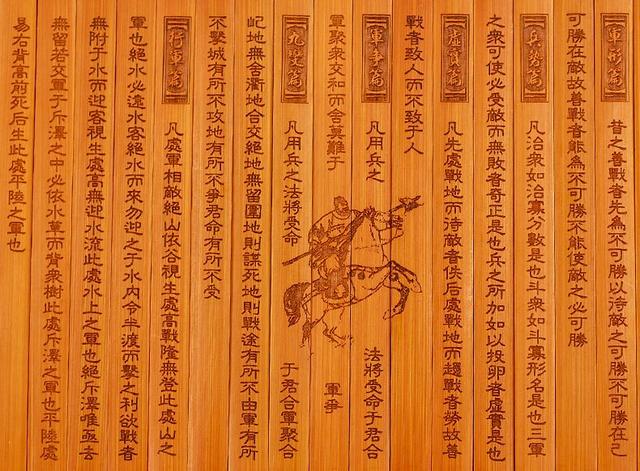 軍形篇 昔之善戰者先為不可勝以待敵之可勝不可勝在己
可勝在敵故善戰者能為不可勝不能使敵之必可勝
兵勢篇 凡治衆如治寡分數是也斗衆如斗寡形名是也三軍
之衆可使必受敵而無敗者奇正是也兵之所加如以投卵者虛實是也
虛實篇 凡先處戰地而待敵者佚后處戰地而趨戰者勞故善
戰者致人而不致于人
軍爭篇 凡用兵之 法將受命于君合
軍聚衆交和而舍莫難于 軍爭
九變篇 凡用兵之法將受命 于君合軍聚合
圮地無舍衢地合交絕地無留圍地則謀死地則戰途有所不由軍有所
不擊城有所不攻地有所不爭君命有所不受
行軍篇 凡處軍相敵絕山依谷視生處高戰隆無登此處山之
軍也絕水必遠水客絕水而來勿迎之于水內令半渡而擊之利欲戰者
無附于水而迎客視生處高無迎水流此處水上之軍也絕斥澤唯亟去
無留若交軍于斥澤之中必依水草而背衆樹此處斥澤之軍也平陸處
易右背高前死后生此處平陸之軍也